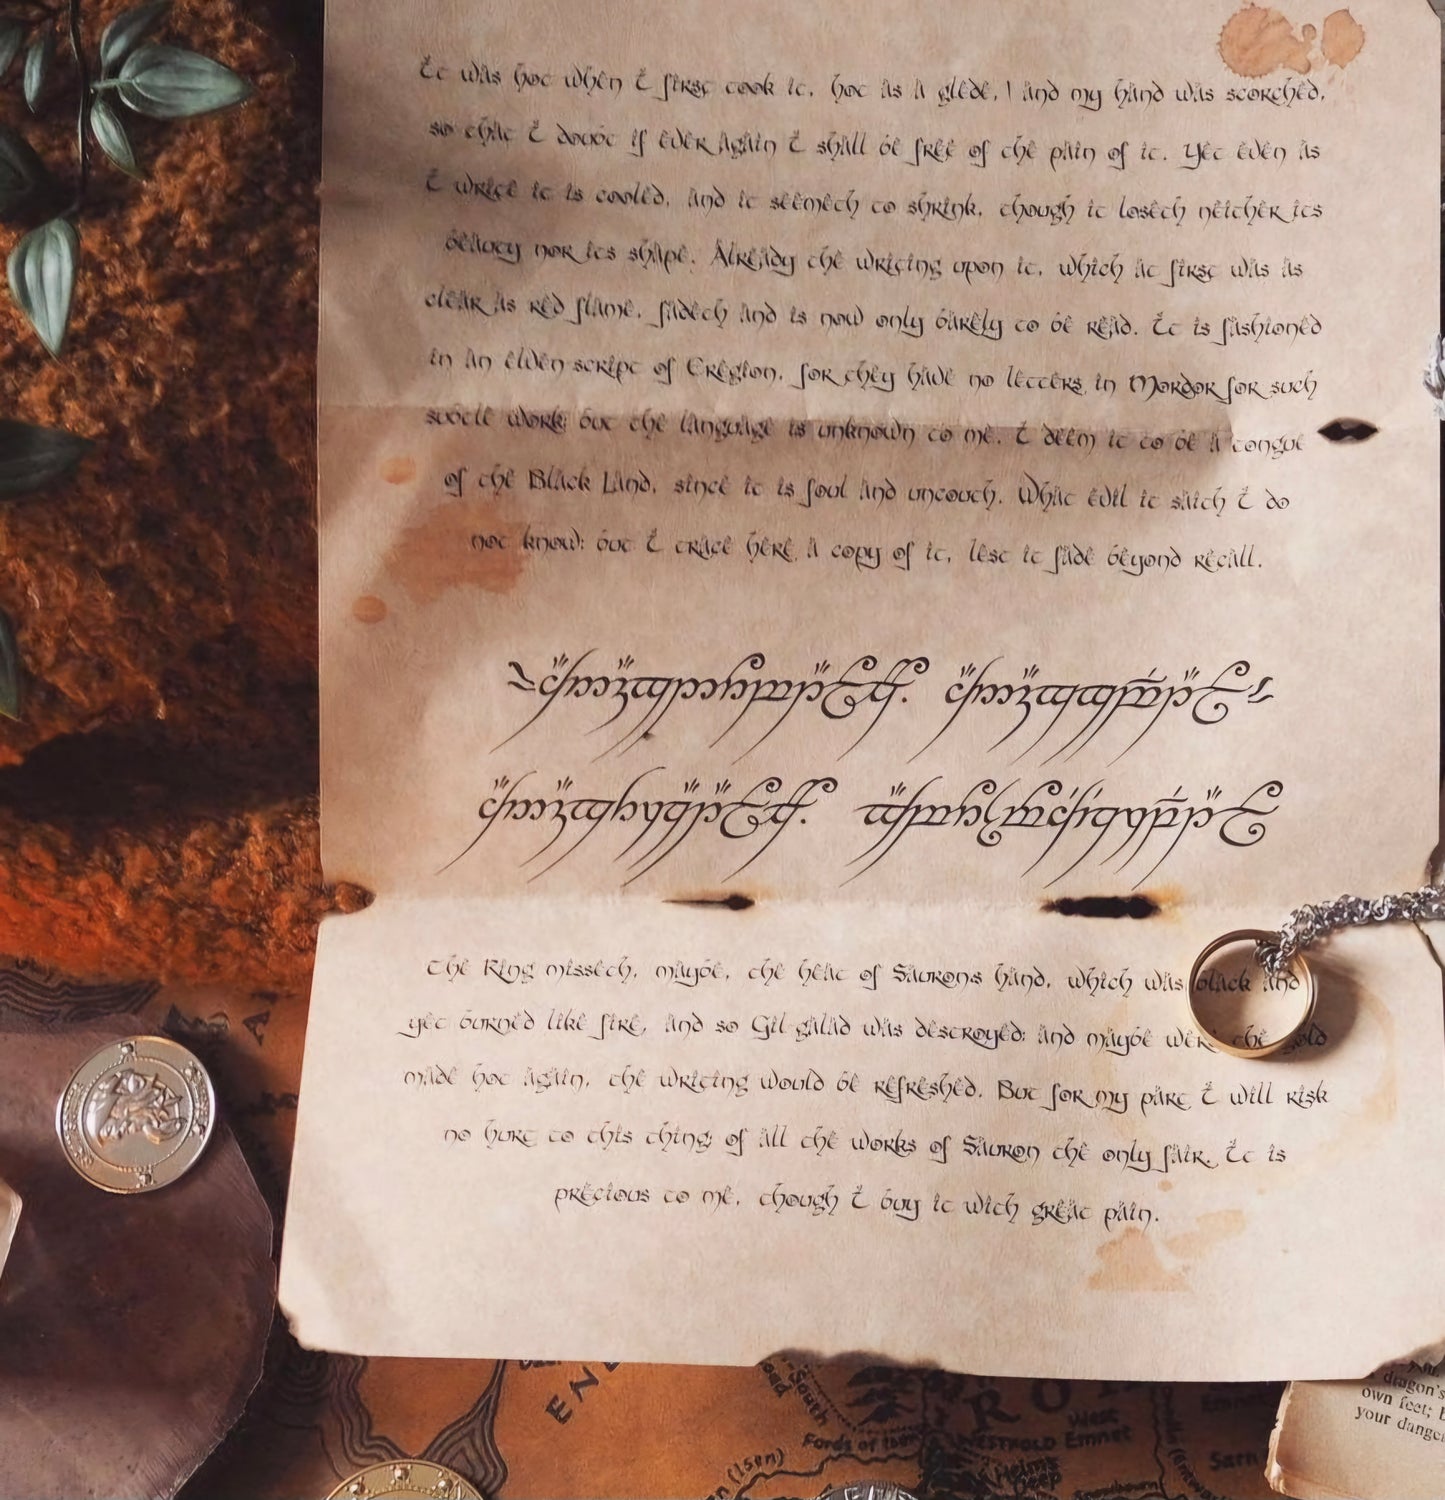 It was hot when I first took it, hot as a glede, and my hand was scorched,
so that I doubt if ever again I shall be free of the pain of it. Yet even as
I write it is cooled, and it seemeth to shrink, though it loseth neither its
beauty nor its shape. Already the writing upon it, which at first was as
clear as red flame, fadeth and is now only barely to be read. It is fashioned
in an elven script of Eregion, for they have no letters in Mordor for such
subtle work; but the language is unknown to me. I deem it to be a tongue
of the Black Land, since it is foul and uncouth. What evil it saith I do
not know; but I trace here a copy of it, lest it fade beyond recall.
The Ring misseth, maybe, the heat of Saurons hand, which was black and
yet burned like fire, and so Gil-galad was destroyed; and maybe were the gold
made hot again, the writing would be refreshed. But for my part I will risk
no hurt to this thing; of all the works of Sauron the only fair. It is
precious to me, though I buy it with great pain.
South
Fords of Isen
WESTFOLD
West
Emnet
Helms
Deep
(Isen)
dragon's
own feet;
your